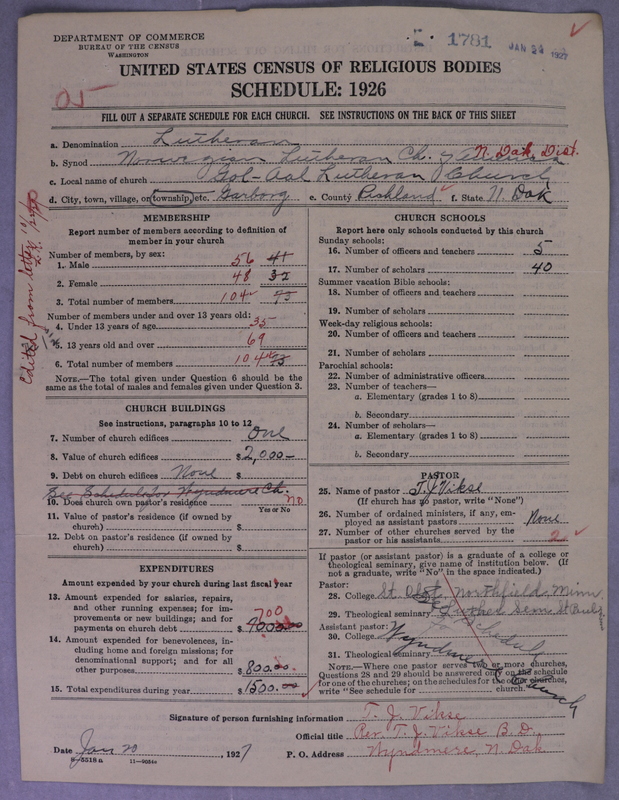 DEPARTMENT OF COMMERCE
BUREAU OF THE CENSUS
WASHINGTON
1781
JAN 24 1927
UNITED STATES CENSUS OF RELIGIOUS BODIES
SCHEDULE: 1926
FILL OUT A SEPARATE SCHEDULE FOR EACH CHURCH. SEE INSTRUCTIONS ON THE BACK OF THIS SHEET
a. Denomination Lutheran
b. Synod Norwegian Lutheran Ch. of America N. Dak. Dist.
c. Local name of church Gol-Aal Lutheran Church
d. City, town, village, or township, etc. Garborg e. County Richland f. State N. Dak
Edited from letter
MEMBERSHIP
Report number of members according to definition of
member in your church
Number of members, by sex:
1. Male 56 41
2. Female 48 32
3. Total number of members 104 73
Number of members under and over 13 years old:
4. Under 13 years of age 35
5. 13 years old and over 69
6. Total number of members 104 73
NOTE.—The total given under Question 6 should be the
same as the total of males and females given under Question 3.
CHURCH BUILDINGS
See instructions, paragraphs 10 to 12
7. Number of church edifices One
8. Value of church edifices $2,000.—
9. Debt on church edifices None
See Schedule for Wyndmere Ch.
10. Does church own pastor's residence no
Yes or No
11. Value of pastor's residence (if owned by
church) $
12. Debt on pastor's residence (if owned by
church) $
EXPENDITURES
Amount expended by your church during last fiscal year
13. Amount expended for salaries, repairs,
and other running expenses; for im-
provements or new buildings; and for 700
payments on church debt $
14. Amount expended for benevolences, in-
cluding home and foreign missions; for
denominational support; and for all
other purposes $800.00
15. Total expenditures during year $1500.00
CHURCH SCHOOLS
Report here only schools conducted by this church
Sunday schools:
16. Number of officers and teachers 5
17. Number of scholars 40
Summer vacation Bible schools:
18. Number of officers and teachers
19. Number of scholars
Week-day religious schools:
20. Number of officers and teachers
21. Number of scholars
Parochial schools:
22. Number of administrative officers
23. Number of teachers—
a. Elementary (grades 1 to 8)
b. Secondary
24. Number of scholars—
a. Elementary (grades 1 to 8)
b. Secondary
PASTOR
25. Name of pastor T. J. Vikse
(If church has no pastor, write "None")
26. Number of ordained ministers, if any, em-
ployed as assistant pastors None
27. Number of other churches served by the
pastor or his assistants 2
If pastor (or assistant pastor) is a graduate of a college or
theological seminary, give name of institution below. (If
not a graduate, write "No" in the space indicated.)
Pastor:
28. College St. Olaf, Northfield Minn
29. Theological seminary Luther Sem. St Paul
See Schedule
Assistant pastor:
30. College
31. Theological seminary
Wyndmere Church
NOTE.—Where one pastor serves two or more churches,
Questions 28 and 29 should be answered only on the schedule
for one of the churches; on the schedules for the other churches,
write "See schedule for church"
Signature of person furnishing information T. J. Vikse
Official title Rev. T. J. Vikse B. D.
Date Jan 20, 1927 P. O. Address Wyndmere, N. Dak
8-5518 a 11-9054